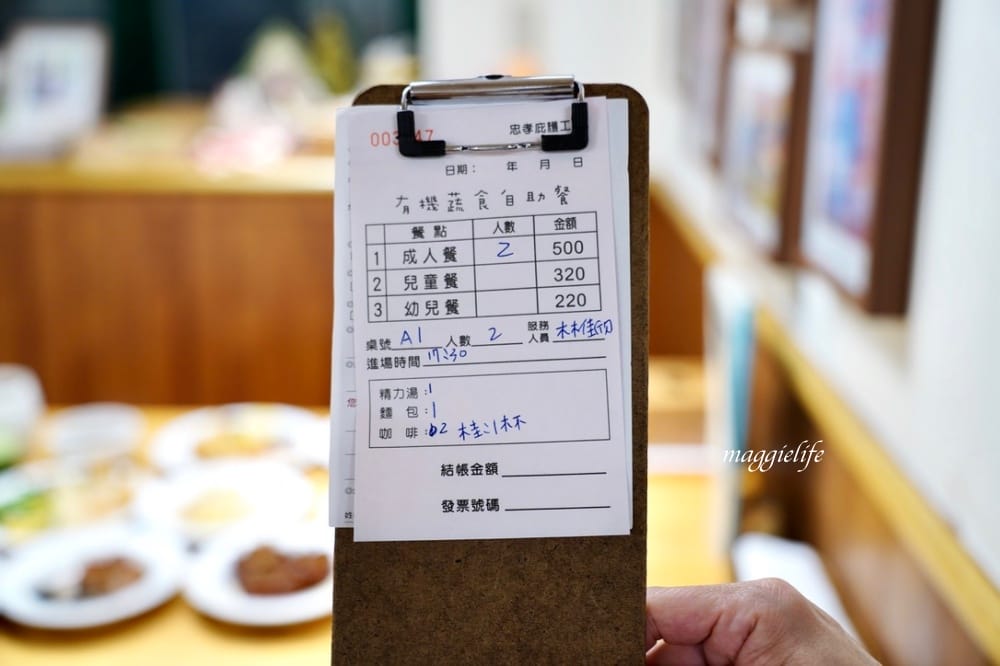 003 47 忠孝庇護工
日期： 年 月 日
有機蔬食自助餐
餐點 人數 金額
1 成人餐 2 500
2 兒童餐 320
3 幼兒餐 220
桌號 A1 人數 2 服務人員
進場時間 17:30
精力湯：1
麵 包：1
咖 啡：2
結帳金額
發票號碼
maggielife